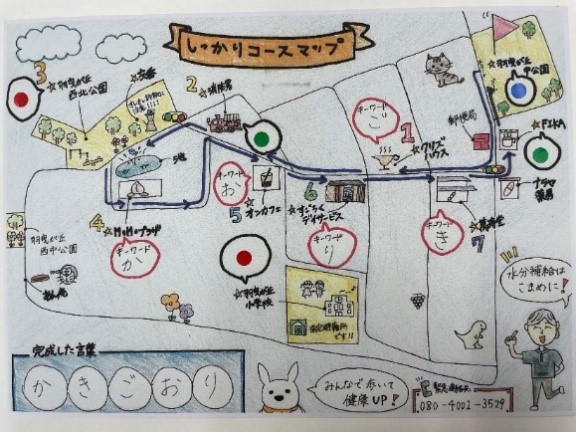 しっかりコースマップ
3
☆羽曳が丘
西北公園
☆交番
2
☆消防署
☆羽曳が丘
中公園
キーワード
ご
1
☆クリス
ハウス
郵便局
☆FIKA
池
キーワード
お
5
☆オンカフェ
6
☆すごらく
デイサービス
キーワード
り
キーワード
き
7
薬局
4
☆MOMOプラザ
キーワード
か
羽曳が丘
西中公園
☆羽曳が丘
小学校
です!!
水分補給は
こまめに!
完成した言葉
かきごおり
みんなで歩いて
健康UP!
緊急連絡先
080-4001-3529